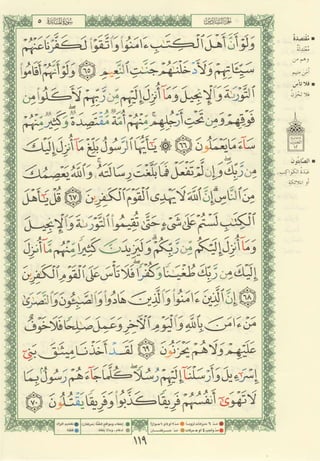 سُورَةُ المَائِدَةِ ٥
الجُزْءُ السَّادِسُ
وَلَوْ أَنَّ أَهْلَ ٱلْكِتَٰبِ ءَامَنُوا۟ وَٱتَّقَوْا۟ لَكَفَّرْنَا عَنْهُمْ
سَيِّـَٔاتِهِمْ وَلَأَدْخَلْنَٰهُمْ جَنَّٰتِ ٱلنَّعِيمِ ٦٥ وَلَوْ أَنَّهُمْ أَقَامُوا۟
ٱلتَّوْرَىٰةَ وَٱلْإِنجِيلَ وَمَآ أُنزِلَ إِلَيْهِم مِّن رَّبِّهِمْ لَأَكَلُوا۟ مِن
فَوْقِهِمْ وَمِن تَحْتِ أَرْجُلِهِم مِّنْهُمْ أُمَّةٌ مُّقْتَصِدَةٌ وَكَثِيرٌ مِّنْهُمْ
سَآءَ مَا يَعْمَلُونَ ٦٦ ۞ يَٰٓأَيُّهَا ٱلرَّسُولُ بَلِّغْ مَآ أُنزِلَ إِلَيْكَ
مِن رَّبِّكَ وَإِن لَّمْ تَفْعَلْ فَمَا بَلَّغْتَ رِسَالَتَهُۥ وَٱللَّهُ يَعْصِمُكَ
مِنَ ٱلنَّاسِ إِنَّ ٱللَّهَ لَا يَهْدِى ٱلْقَوْمَ ٱلْكَٰفِرِينَ ٦٧ قُلْ يَٰٓأَهْلَ
ٱلْكِتَٰبِ لَسْتُمْ عَلَىٰ شَىْءٍ حَتَّىٰ تُقِيمُوا۟ ٱلتَّوْرَىٰةَ وَٱلْإِنجِيلَ
وَمَآ أُنزِلَ إِلَيْكُم مِّن رَّبِّكُمْ وَلَيَزِيدَنَّ كَثِيرًا مِّنْهُم مَّآ أُنزِلَ
إِلَيْكَ مِن رَّبِّكَ طُغْيَٰنًا وَكُفْرًا فَلَا تَأْسَ عَلَى ٱلْقَوْمِ ٱلْكَٰفِرِينَ
٦٨ إِنَّ ٱلَّذِينَ ءَامَنُوا۟ وَٱلَّذِينَ هَادُوا۟ وَٱلصَّٰبِـُٔونَ وَٱلنَّصَٰرَىٰ
مَنْ ءَامَنَ بِٱللَّهِ وَٱلْيَوْمِ ٱلْءَاخِرِ وَعَمِلَ صَٰلِحًا فَلَا خَوْفٌ
عَلَيْهِمْ وَلَا هُمْ يَحْزَنُونَ ٦٩ لَقَدْ أَخَذْنَا مِيثَٰقَ بَنِىٓ
إِسْرَٰٓءِيلَ وَأَرْسَلْنَآ إِلَيْهِمْ رُسُلًا كُلَّمَا جَآءَهُمْ رَسُولٌۢ بِمَا
لَا تَهْوَىٰٓ أَنفُسُهُمْ فَرِيقًا كَذَّبُوا۟ وَفَرِيقًا يَقْتُلُونَ ٧٠
مقتصدة
فلا تأس
الصابئون
١١٩